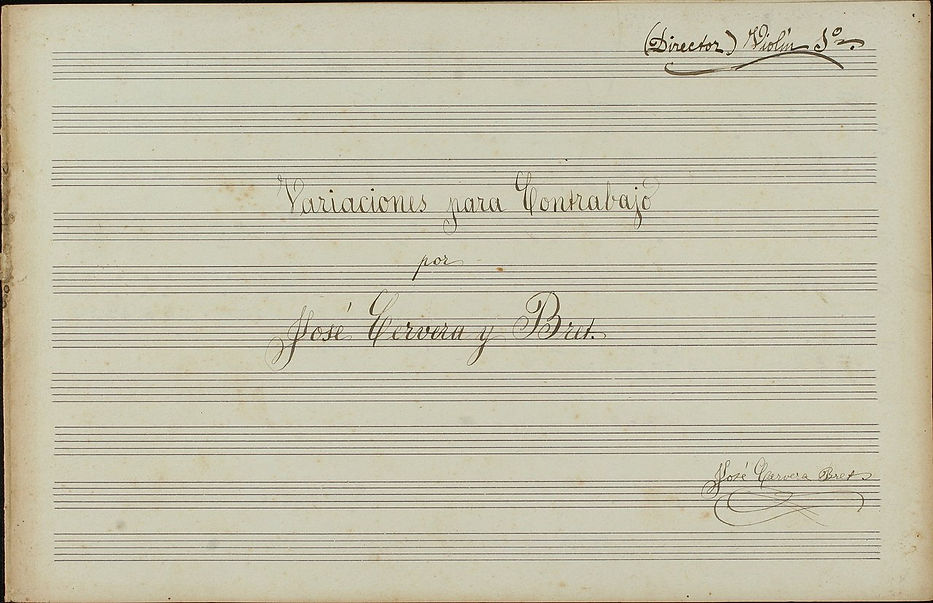 (Director) Violín 1º.
Variaciones para Contrabajo
por
José Cervera y Bret.
José Cervera Bret